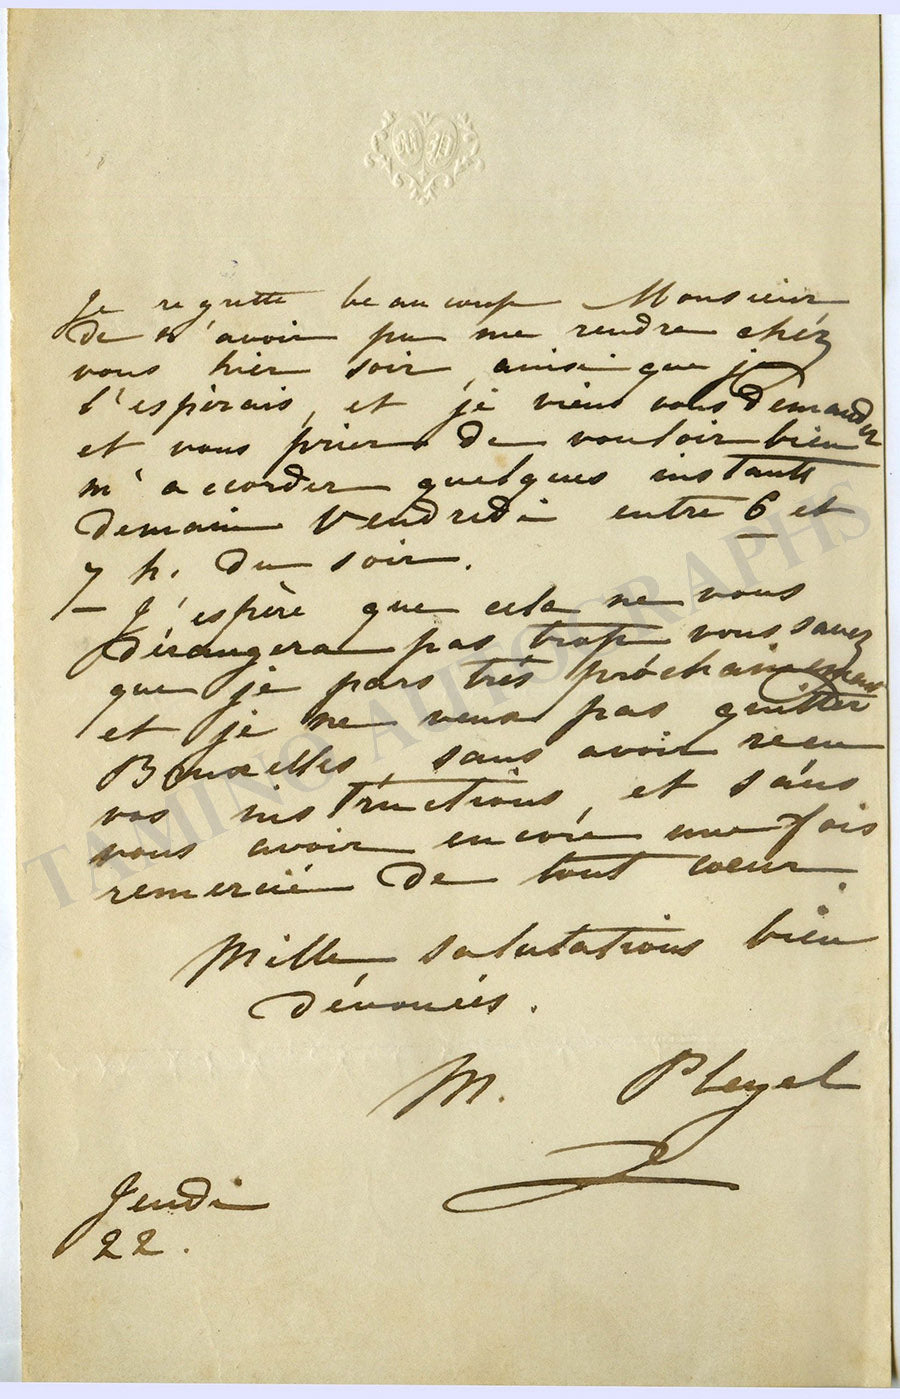 MP
Je regrette beaucoup Monsieur
de n'avoir pu me rendre chéz
vous hier soir, ainsi que je
l'espèrais, et je viens vous demander
et vous prier de vouloir bien
m'accorder quelques instants
demain Vendredi entre 6 et
7 h. du soir.
J'espère que cela ne vous
dérangera pas trop vous savez
que je pars très próchainement
et je ne veux pas quitter
Bruxelles sans avoir recu
vos instructions, et sans
vous avoir encore une fois
remercié de tout coeur.
Mille salutations bien
dévouées.
M. Pleyel
Jeudi
22.
TAMINO AUTOGRAPHS